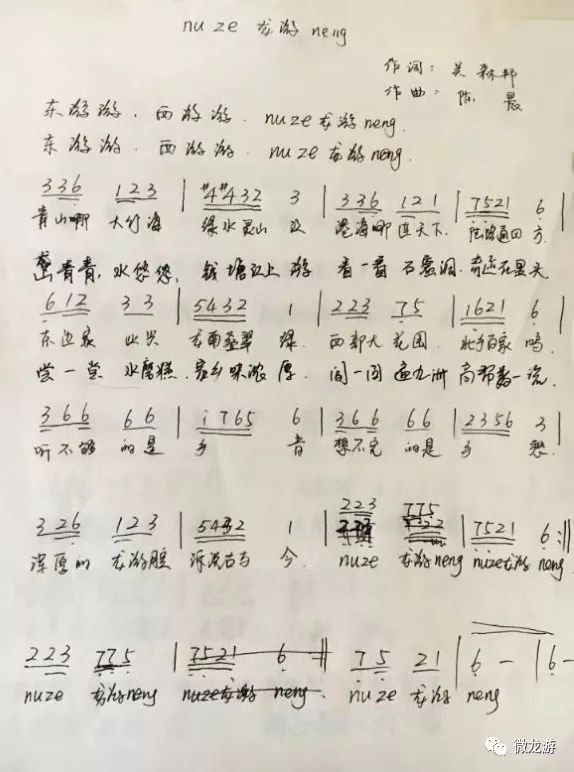 nuze 龙游 neng
作词: 吴森邦
作曲: 陈晨
东游游.西游游.nuze龙游neng.
东游游.西游游.nuze龙游neng.
336 123 | #4#432 3 | 336 121 | 7521 6
青山哪 大竹海 绿水灵山 江 港海哪 连天下. 四方.
山青青,水悠悠,钱塘江上游 看一看 石窟洞.奇迹在里天
612 33 | 5432 1 | 223 75 | 1621 6
东边家 山兴 龙南叠翠 绿. 西部大 花园. 北乡百家 鸣.
尝一尝 水磨糕.家乡味浓厚. 问一问 遍九洲 商帮数一流
366 66 | i765 6 | 366 66 | 2356 3
听不够 的是 乡 音 想不完 的是 乡 愁.
326 123 | 5432 1 | 223 775 | 7521 6 :||
深厚的 龙游腔 源流古与 今. nuze 龙游neng nuze龙游 neng.
223 775 | 7521 6 || 75 21 | 6 - | 6 -
nuze 龙游neng nuze龙游 neng. nuze 龙游 neng
微龙游